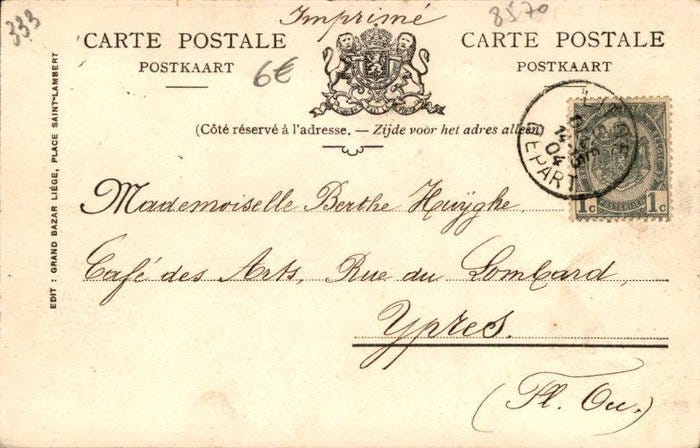 333
Imprimé
8570
CARTE POSTALE
POSTKAART
6€
CARTE POSTALE
POSTKAART
(Côté réservé à l'adresse. — Zijde voor het adres alleen)
DEPART
04
1c 1c
Mademoiselle Berthe Huÿghe,
Café des Arts, Rue du Lombard,
Ypres.
(Fl. Occ.)
EDIT : GRAND BAZAR LIÉGE, PLACE SAINT-LAMBERT